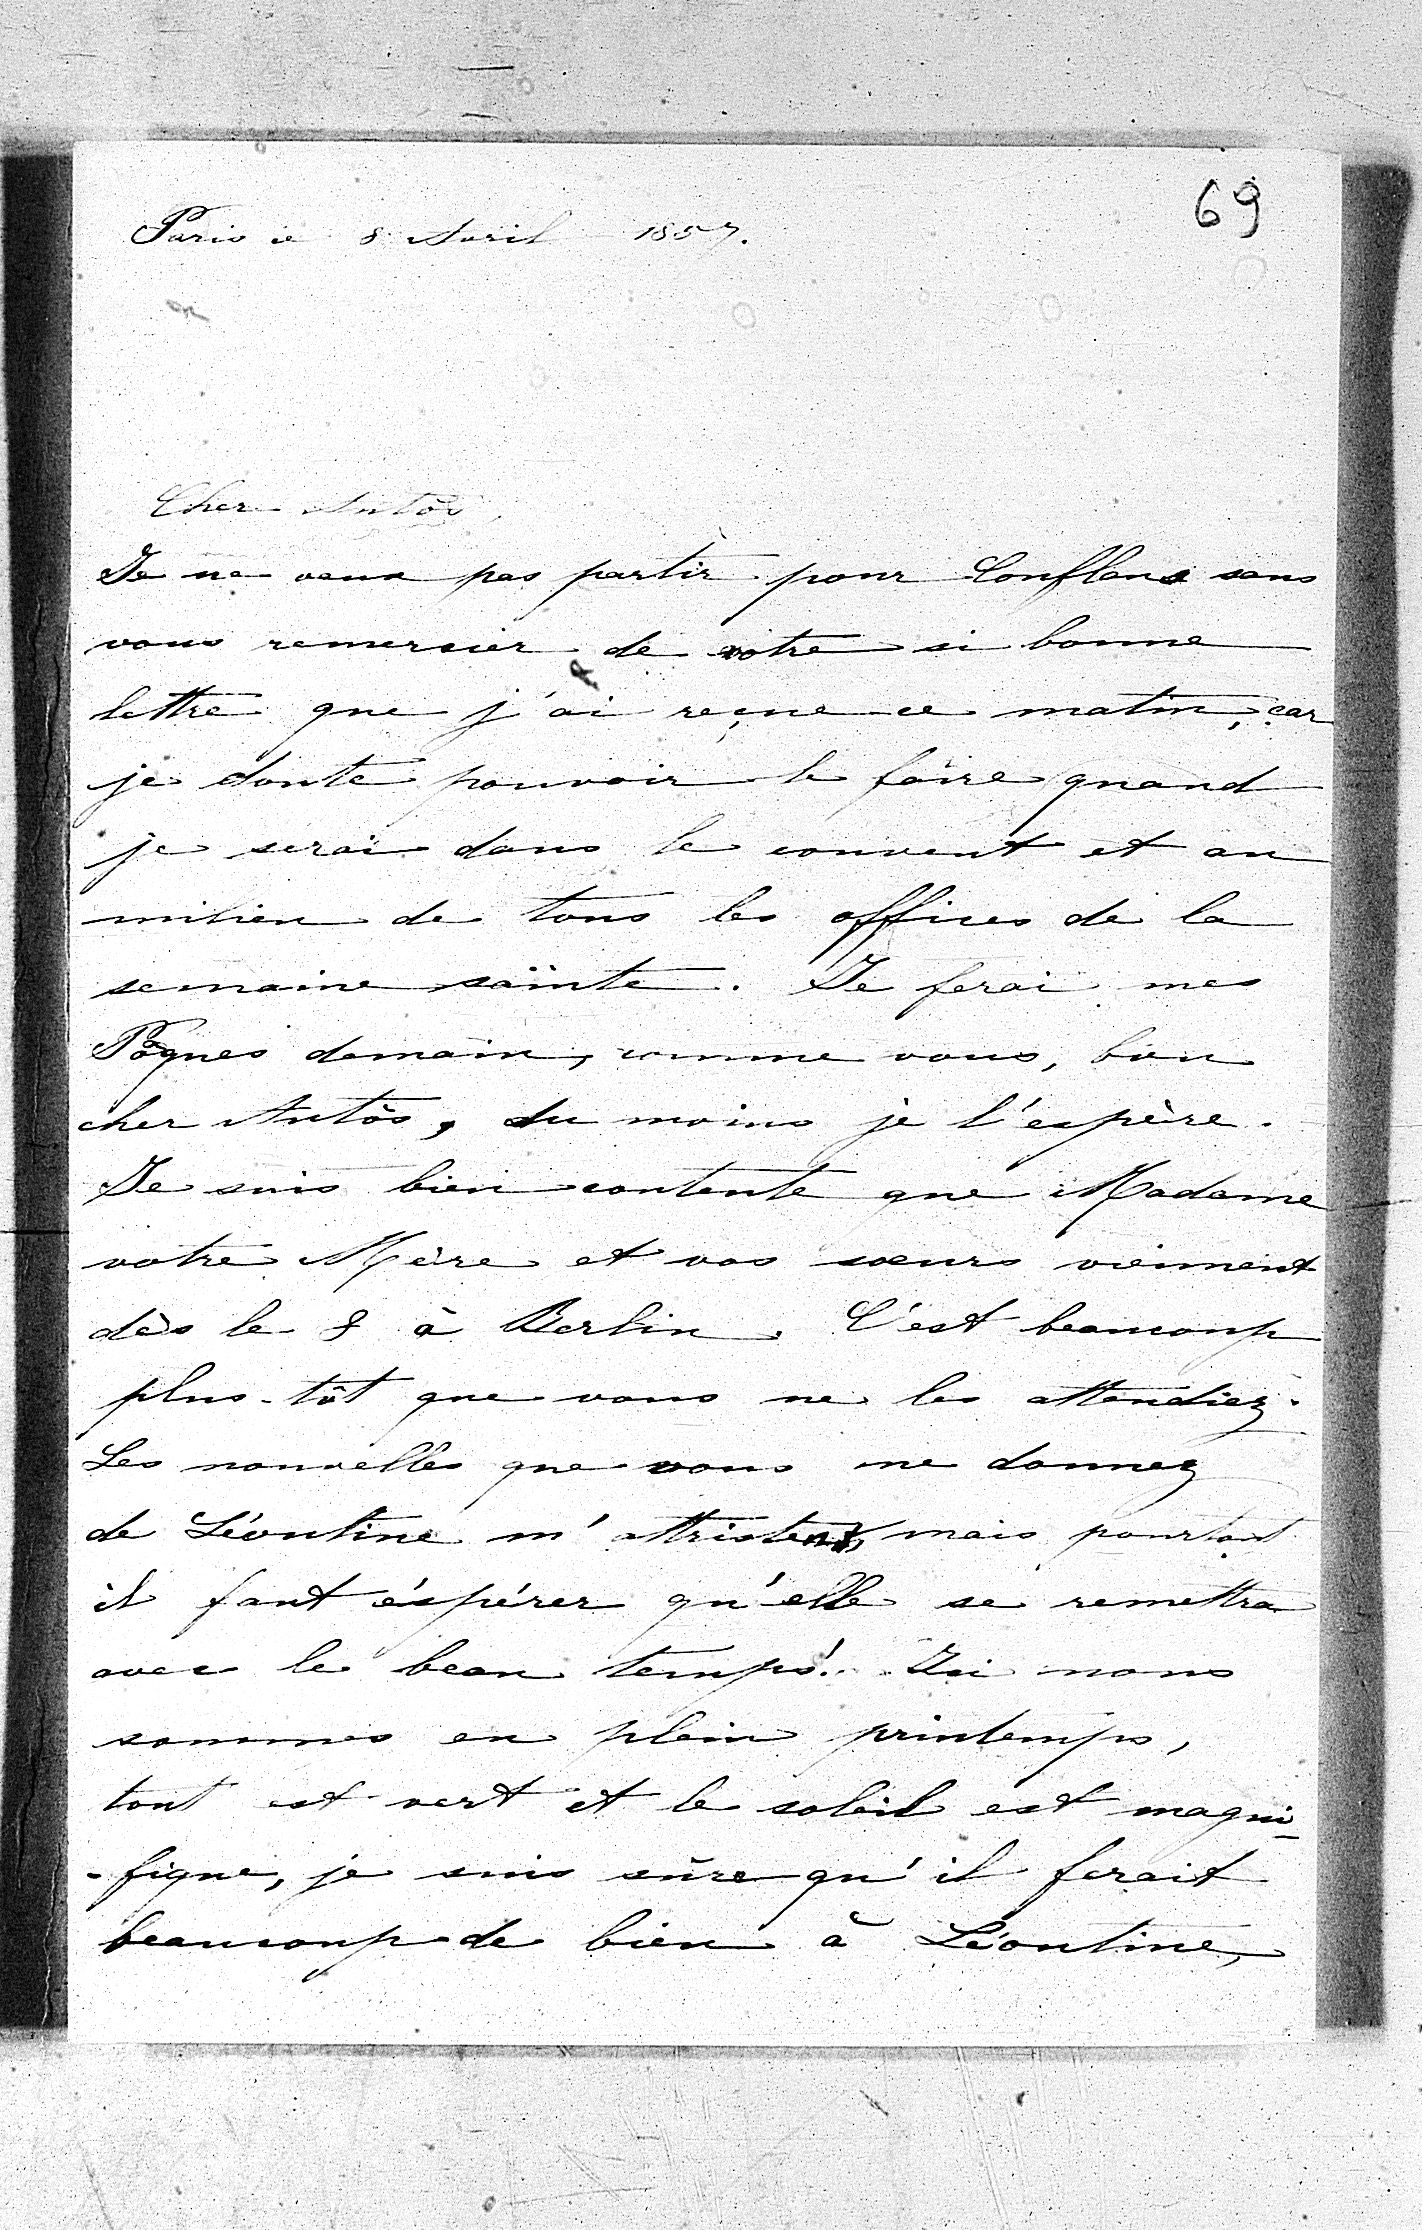 69
Paris ce 8 Avril 1857.
Cher Antôs,
Je ne veux pas partir pour Conflans sans
vous remercier de votre si bonne
lettre que j'ai reçue ce matin, car
je doute pouvoir le faire quand
je serai dans le couvent et au
milieu de tous les offices de la
semaine sainte. Je ferai mes
Pâques demain, comme vous, bon
cher Antôs, du moins je l'espère.
Je suis bien contente que Madame
votre Mère et vos sœurs viennent
dès le 8 à Berlin. C'est beaucoup
plus-tôt que vous ne les attendiez.
Les nouvelles que vous me donnez
de Léontine m'attristent, mais pourtant
il faut éspérer qu'elle se remettra
avec le beau temps! Ici nous
sommes en plein printemps,
tout est vert et le soleil est magni-
-fique, je suis sûre qu'il ferait
beaucoup de bien à Léontine,